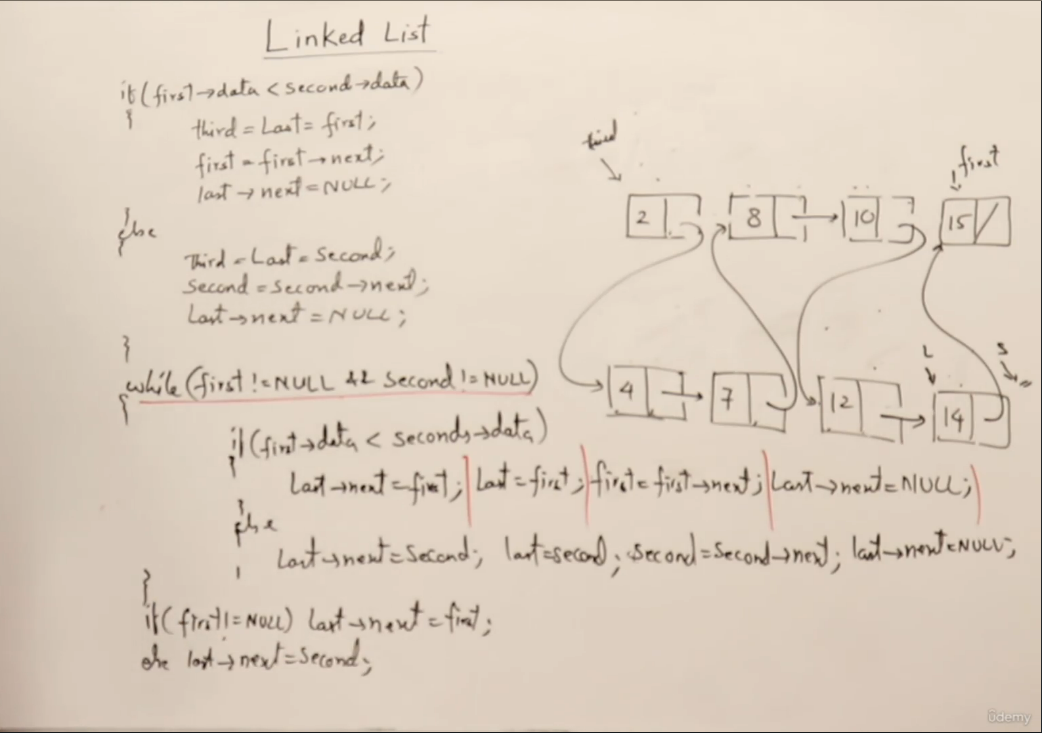 Linked List
if(first→data < second→data)
{
third = Last = first;
first = first→next;
last→next = NULL;
}
else
{
Third = Last = Second;
Second = Second→next;
Last→next = NULL;
}
while(first != NULL && Second != NULL)
{
if(first→data < second→data)
{
Last→next = first; Last = first; first = first→next; Last→next = NULL;
}
else
Last→next = Second; last = second; Second = Second→next; last→next = NULL;
}
if(first != NULL) Last→next = first;
else last→next = Second;
third
first
2 8 10 15
L S
4 7 12 14
ûdemy